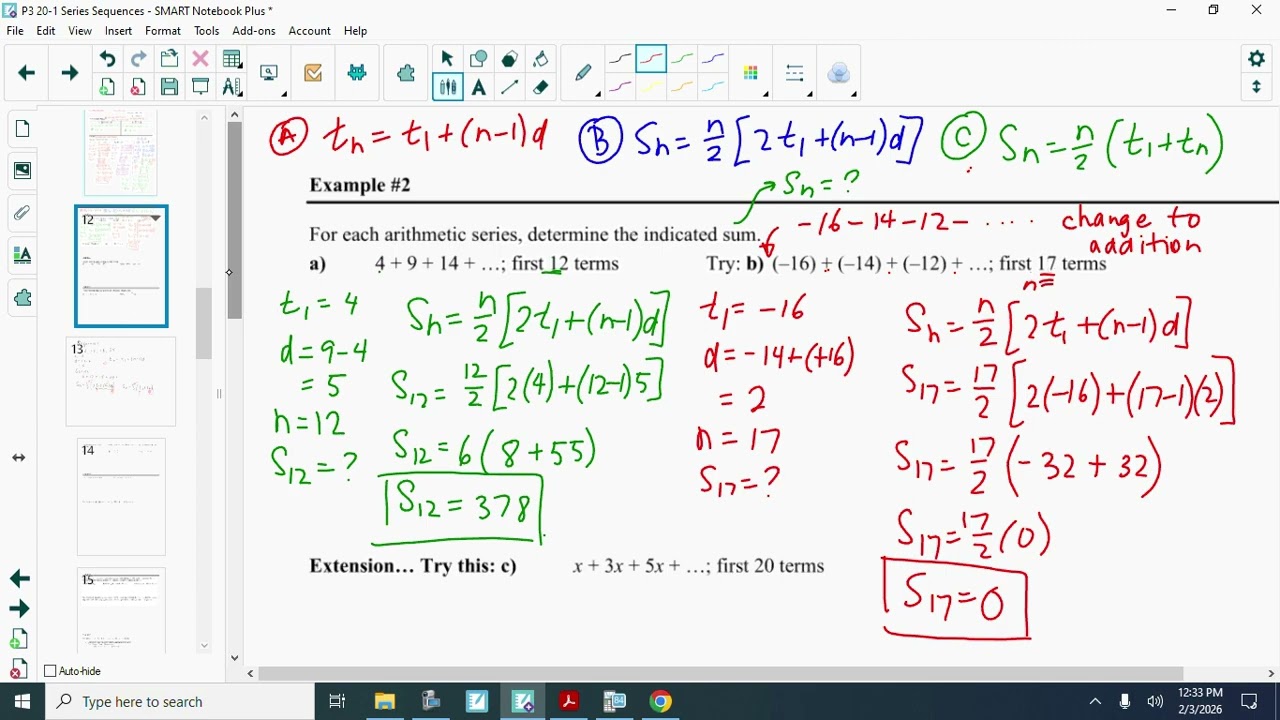 P3 20-1 Series Sequences - SMART Notebook Plus *
File Edit View Insert Format Tools Add-ons Account Help
Ⓐ tₙ = t₁ + (n-1)d Ⓑ Sₙ = n/2 [2t₁ + (n-1)d] Ⓒ Sₙ = n/2 (t₁ + tₙ)
Example #2
Sₙ = ?
-16 - 14 - 12 - .... change to
addition
For each arithmetic series, determine the indicated sum.
a) 4 + 9 + 14 + …; first 12 terms
Try: b) (–16) + (–14) + (–12) + …; first 17 terms
n=
t₁ = 4
d = 9-4
= 5
n = 12
S₁₂ = ?
Sₙ = n/2 [2t₁ + (n-1)d]
S₁₂ = 12/2 [2(4) + (12-1)5]
S₁₂ = 6(8 + 55)
S₁₂ = 378
t₁ = -16
d = -14 + (+16)
= 2
n = 17
S₁₇ = ?
Sₙ = n/2 [2t₁ + (n-1)d]
S₁₇ = 17/2 [2(-16) + (17-1)(2)]
S₁₇ = 17/2 (-32 + 32)
S₁₇ = 17/2 (0)
S₁₇ = 0
Extension… Try this: c) x + 3x + 5x + …; first 20 terms
12
13
14
15
Auto-hide
Type here to search
12:33 PM
2/3/2026